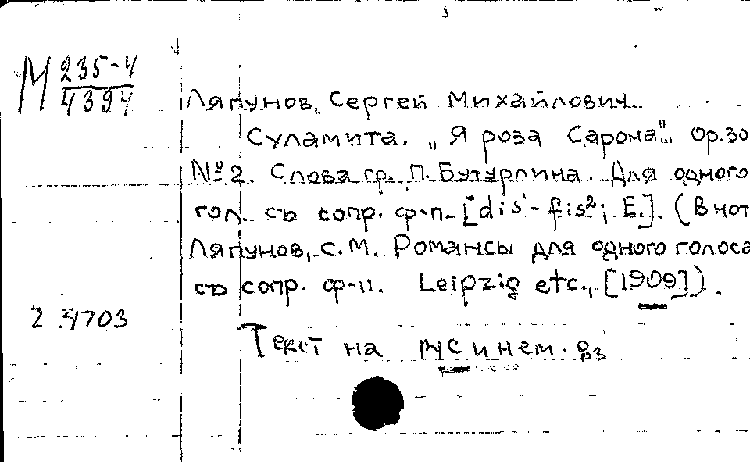 М 235-4
4394
Ляпунов, Сергей Михайлович.
Суламита. „Я роза Сарона". Op.30
№2. Слова гр. П. Бутурлина. Для одного
гол. съ сопр. ф-п. [dis'-fis²; E.]. (В нот
Ляпунов, С.М. Романсы для одного голоса
съ сопр. ф-п. Leipzig etc., [1909]).
2 4703
Текст на рус и нем. яз